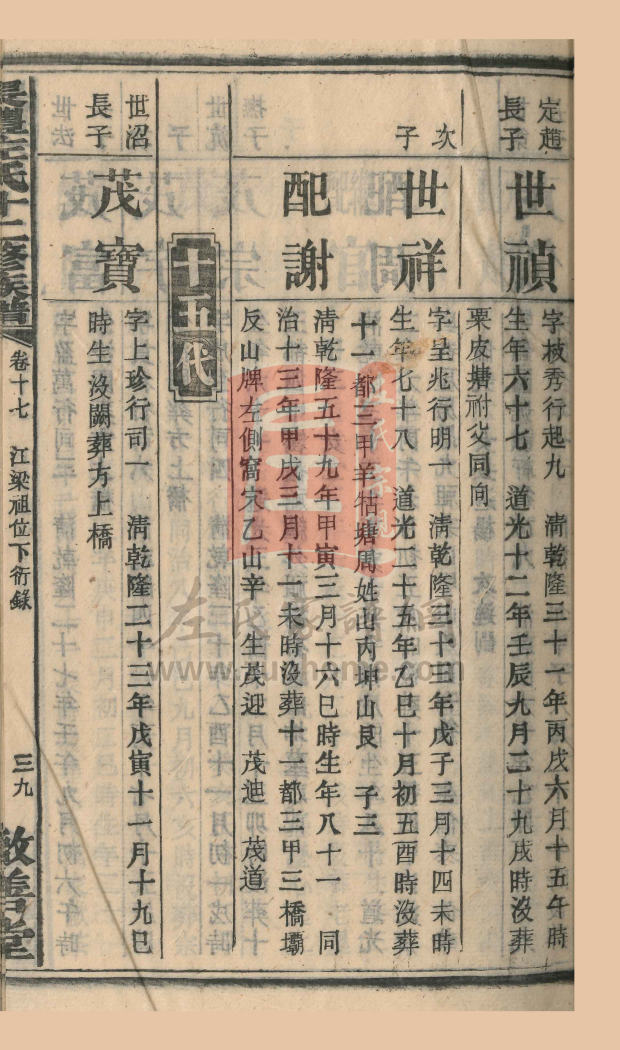 定趙
長子
世禎
字枝秀行起九　清乾隆三十一年丙戌六月十五午時
生年六十七　道光十二年壬辰九月二十九戌時沒葬
栗皮塘祔父同向
次
子
世祥
字呈兆行明一　清乾隆三十三年戊子三月十四未時
生年七十八　道光二十五年乙巳十月初五酉時沒葬
十一都三甲羊牯塘周姓山內坤山艮　子三
配謝
清乾隆五十九年甲寅三月十六巳時生年八十一　同
治十三年甲戌三月十一未時沒葬十一都三甲三橋壩
反山牌左側窩宋乙山辛　生茂迎　茂迪　茂道
十五代
世沼
長子
茂寶
字上珍行司一　清乾隆二十三年戊寅十一月十九巳
時生沒闕葬方上橋
左氏十二修族譜
卷十七　江梁祖位下衍錄
三九
敦善堂
左氏家譜网